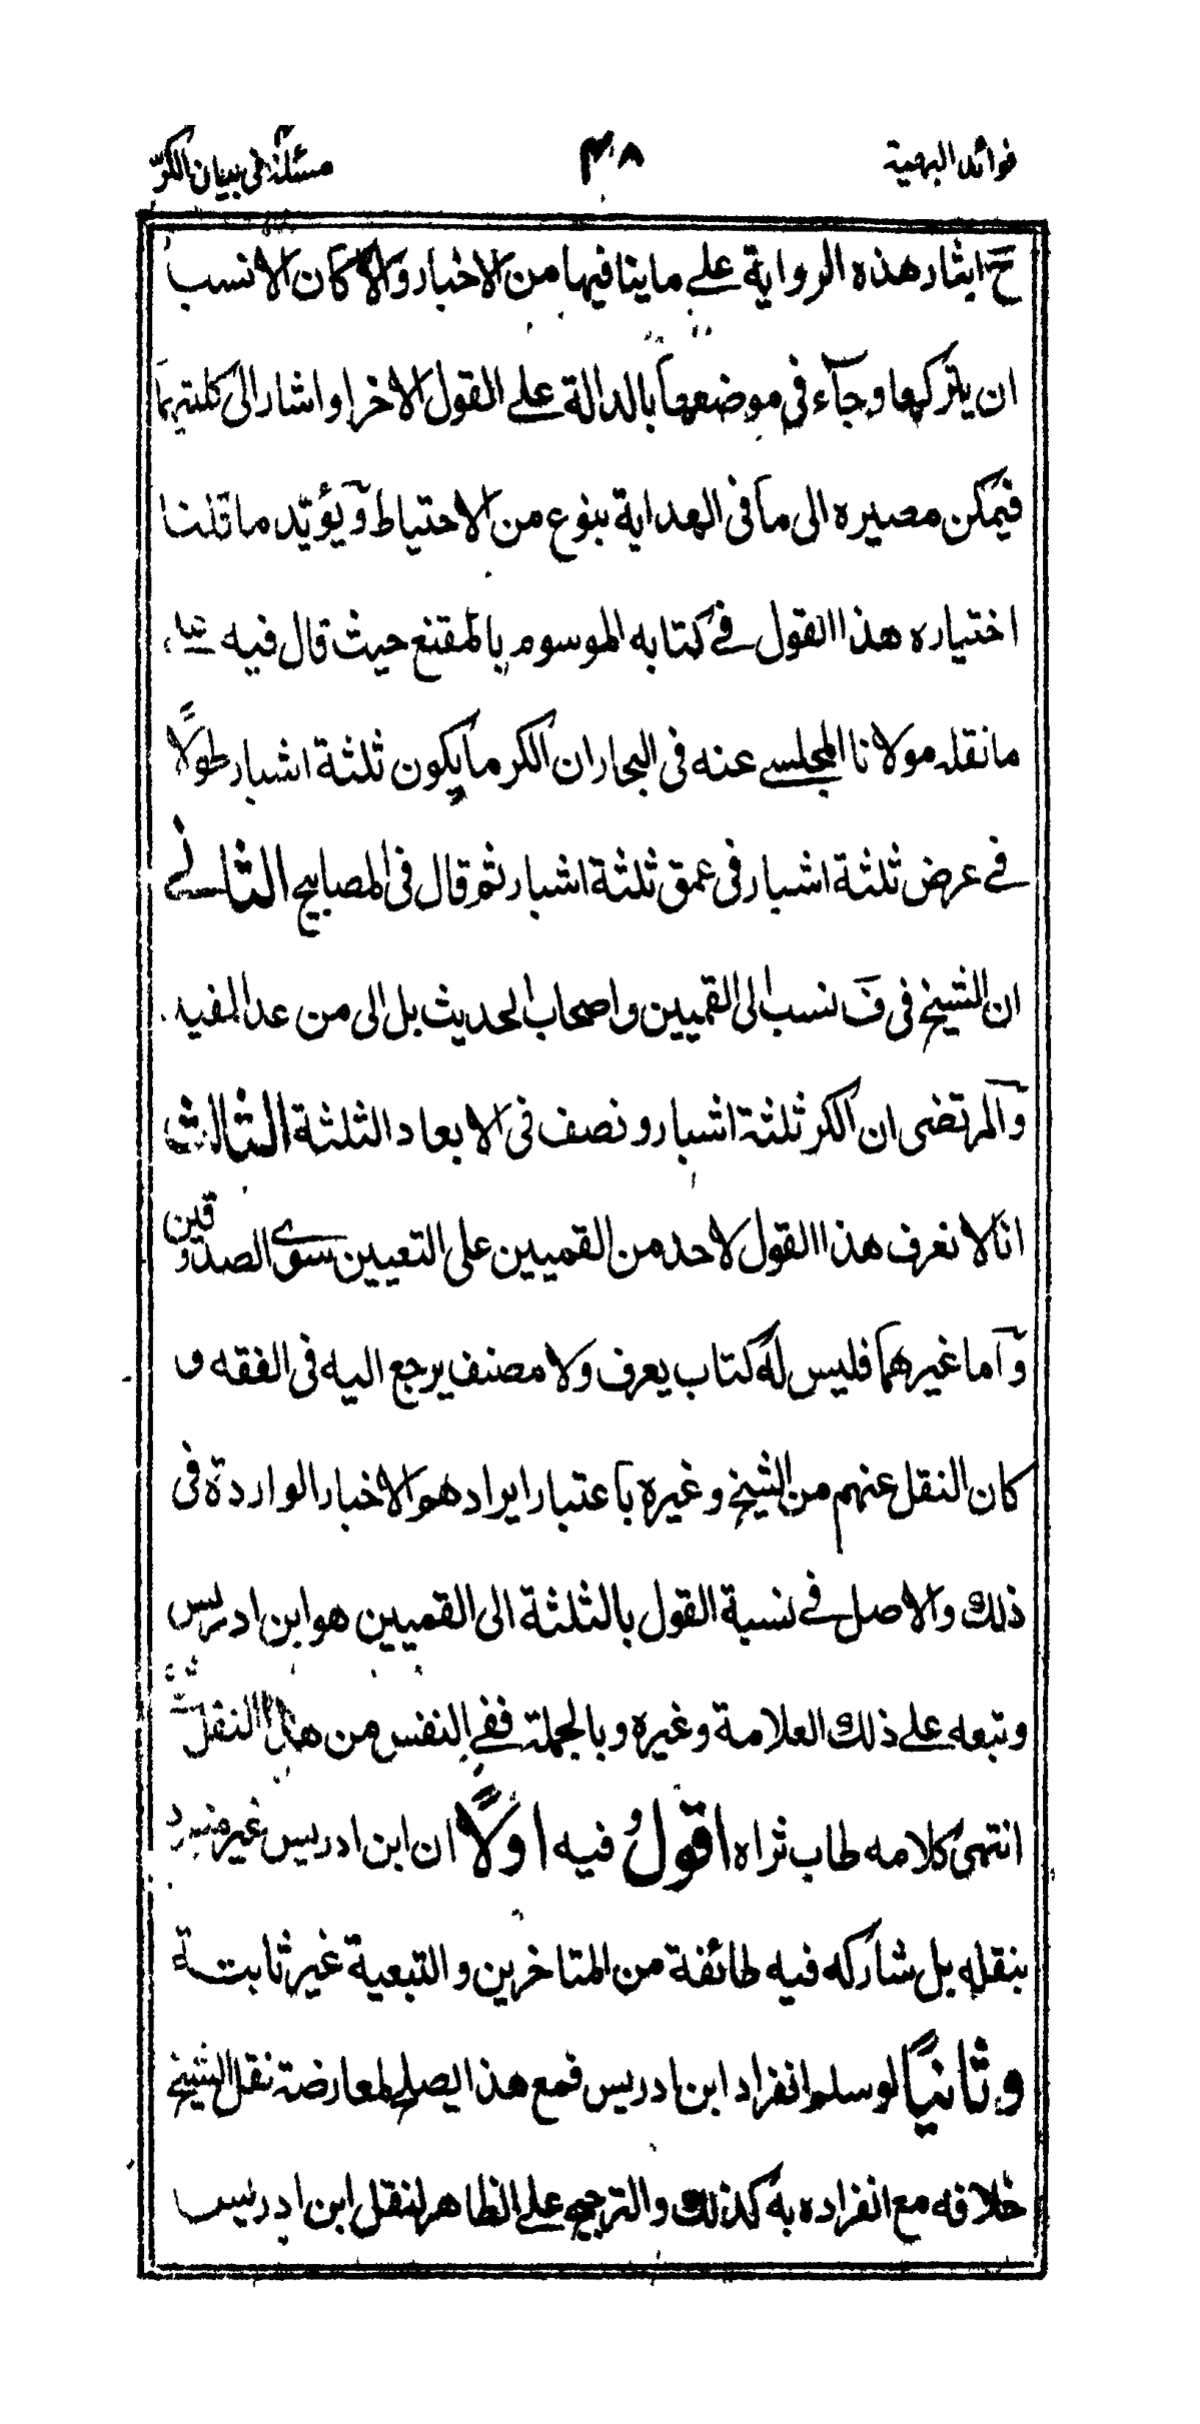 فوائد البهية ٣٨ مسئلة في بيان الكرّ
ح ايثار هذه الرواية على ما ينافيها من الاخبار والا كان الانسب
ان يتركها وجآء في موضعها بالدالة على القول الاخر او اشار الى كلتيهما
فيمكن مصيره الى ما في الهداية بنوع من الاحتياط ويؤيّد ما قلنا
اختياره هذا القول في كتابه الموسوم بالمقنع حيث قال فيه
ما نقله مولانا المجلسي عنه في البحار ان الكر ما يكون ثلثة اشبار طولاً
في عرض ثلثة اشبار في عمق ثلثة اشبار ثم قال في المصابيح الثاني
ان الشيخ في ف نسب الى القميين واصحاب الحديث بل الى من عدا المفيد
والمرتضى ان الكر ثلثة اشبار ونصف في الابعاد الثلثة الثالث
انا لا نعرف هذا القول لاحد من القميين على التعيين سوى الصدوقين
وآما غيرهما فليس له كتاب يعرف ولا مصنف يرجع اليه في الفقه و
كان النقل عنهم من الشيخ وغيره باعتبار ايرادهم الاخبار الواردة في
ذلك والاصل في نسبة القول بالثلثة الى القميين هو ابن ادريس
وتبعه على ذلك العلامة وغيره وبالجملة ففي النفس من هذا النقل شئ
انتهى كلامه طاب ثراه اقول فيه اولاً ان ابن ادريس غير منفرد
بنقله بل شاركه فيه طائفة من المتاخرين والتبعية غير ثابتة
وثانياً لو سلم انفراد ابن ادريس فمع هذا يصلح لمعارضة نقل الشيخ
خلافه مع انفراده به كذلك والترجيح على الظاهر لنقل ابن ادريس